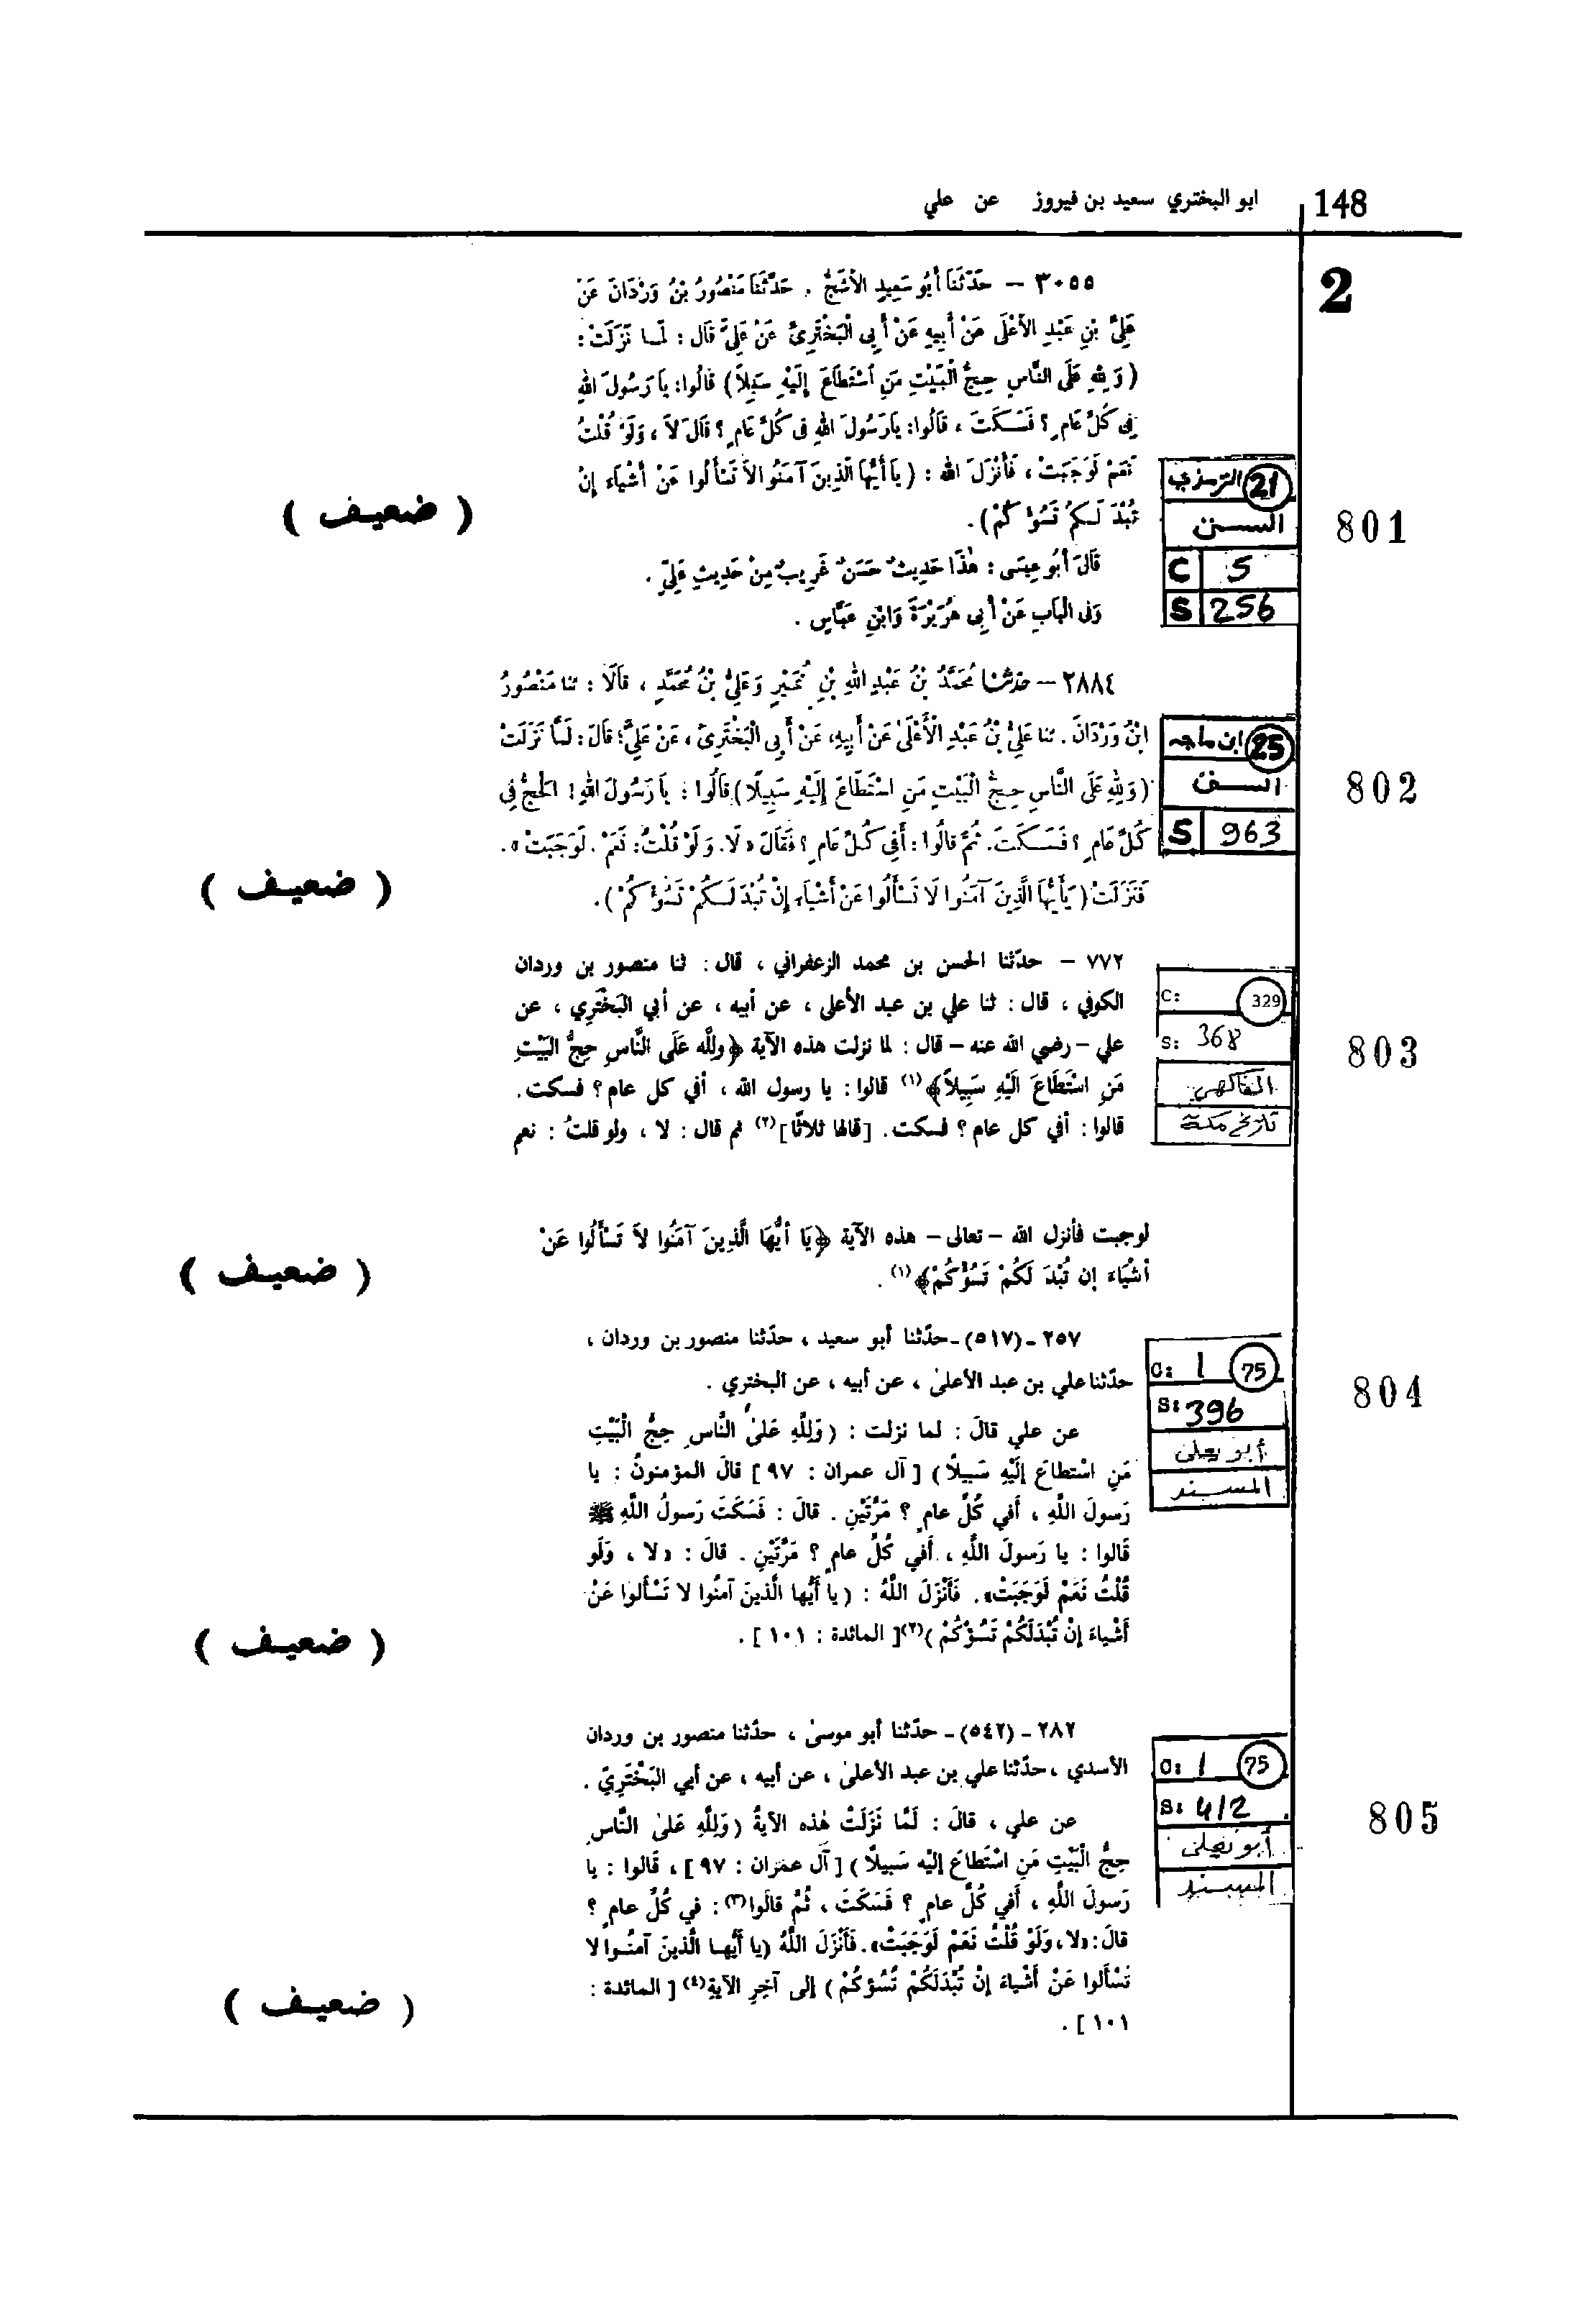 148
ابو البختري سعيد بن فيروز عن علي
2
٣٠٥٥ – حَدَّثَنَا أَبُو سَعِيدٍ الأَشَجُّ . حَدَّثَنَا مَنْصُورُ بْنُ وَرْدَانَ عَنْ
عَلِيِّ بْنِ عَبْدِ الأَعْلَى عَنْ أَبِيهِ عَنْ أَبِي الْبَخْتَرِيِّ عَنْ عَلِيٍّ قَالَ : لَمَّا نَزَلَتْ :
(وَلِلهِ عَلَى النَّاسِ حِجُّ الْبَيْتِ مَنِ اسْتَطَاعَ إِلَيْهِ سَبِيلاً) قَالُوا: يَا رَسُولَ اللهِ
فِي كُلِّ عَامٍ ؟ فَسَكَتَ ، قَالُوا: يَا رَسُولَ اللهِ فِي كُلِّ عَامٍ ؟ قَالَ لاَ ، وَلَوْ قُلْتُ
نَعَمْ لَوَجَبَتْ ، فَأَنْزَلَ اللهُ : (يَا أَيُّهَا الَّذِينَ آمَنُوا لاَ تَسْأَلُوا عَنْ أَشْيَاءَ إِنْ
تُبْدَ لَكُمْ تَسُؤْكُمْ).
قَالَ أَبُو عِيسَى : هَذَا حَدِيثٌ حَسَنٌ غَرِيبٌ مِنْ حَدِيثِ عَلِيٍّ .
وَفِي الْبَابِ عَنْ أَبِي هُرَيْرَةَ وَابْنِ عَبَّاسٍ .
( ضعيف )
الترمذي 21
السنن
C 5
S 256
801
٢٨٨٤ – حدثنا مُحَمَّدُ بْنُ عَبْدِ اللهِ بْنِ نُمَيْرٍ وَعَلِيُّ بْنُ مُحَمَّدٍ ، قَالَا : ثنا مَنْصُورُ
ابْنُ وَرْدَانَ . ثنا عَلِيُّ بْنُ عَبْدِ الْأَعْلَىٰ عَنْ أَبِيهِ، عَنْ أَبِي الْبَخْتَرِيِّ ، عَنْ عَلِيٍّ؛ قَالَ: لَمَّا نَزَلَتْ
(وَلِلهِ عَلَى النَّاسِ حِجُّ الْبَيْتِ مَنِ اسْتَطَاعَ إِلَيْهِ سَبِيلًا) قَالُوا : يَا رَسُولَ اللهِ! الْحَجُّ فِي
كُلِّ عَامٍ ؟ فَسَكَتَ. ثُمَّ قَالُوا : أَفِي كُلِّ عَامٍ ؟ فَقَالَ « لَا. وَلَوْ قُلْتُ: نَعَمْ. لَوَجَبَتْ ».
فَنَزَلَتْ (يَأَيُّهَا الَّذِينَ آمَنُوا لَا تَسْأَلُوا عَنْ أَشْيَاءَ إِنْ تُبْدَ لَكُمْ تَسُؤْكُمْ).
( ضعيف )
ابن ماجه 25
السنن
S 963
802
٧٧٢ – حدّثنا الحسن بن محمد الزعفراني ، قال : ثنا منصور بن وردان
الكوفي ، قال : ثنا علي بن عبد الأعلى ، عن أبيه ، عن أبي البَخْتَرِي ، عن
علي – رضي الله عنه – قال : لما نزلت هذه الآية ﴿وللَّه عَلَى النَّاسِ حِجُّ البَيْتِ
مَنِ اسْتَطَاعَ اِلَيْهِ سَبِيلاً﴾(١) قالوا : يا رسول الله ، أفي كل عام ؟ فسكت.
قالوا : أفي كل عام ؟ فسكت. [قالها ثلاثًا](٢) ثم قال : لا ، ولو قلتُ : نعم
لوجبت فأنزل الله – تعالى – هذه الآية ﴿يَا أَيُّهَا الَّذِينَ آمَنُوا لاَ تَسْأَلُوا عَنْ
أَشْيَاءَ إن تُبْدَ لَكُمْ تَسُؤْكُمْ﴾(١) .
( ضعيف )
C: 329
S: 368
الفاكهي
تاريخ مكة
803
٢٥٧ - (٥١٧) - حدّثنا أبو سعيد ، حدّثنا منصور بن وردان ،
حدّثنا علي بن عبد الأعلىٰ ، عن أبيه ، عن البختري .
عن علي قالَ : لما نزلت : (وَلِلَّهِ عَلىٰ النَّاسِ حِجُّ الْبَيْتِ
مَنِ اسْتطاعَ إِلَيْهِ سَبيلًا) [ آل عمران : ٩٧ ] قالَ المؤمنونُ : يا
رَسولَ اللَّهِ ، أَفي كُلِّ عامٍ ؟ مَرَّتَيْنِ . قالَ : فَسَكَتَ رَسولُ اللَّهِ ﷺ
قَالوا : يا رَسولَ اللَّهِ ، أَفي كُلِّ عامٍ ؟ مَرَّتَيْنِ . قالَ : «لا ، وَلَو
قُلْتُ نَعَمْ لَوَجَبَتْ». فَأَنْزَلَ اللَّهُ : (يا أَيُّها الَّذينَ آمنُوا لا تَسْأَلوا عَنْ
أَشْياءَ إِنْ تُبْدَلَكُمْ تَسُؤْكُمْ)(٢) [ المائدة : ١٠١ ] .
( ضعيف )
C: 1 75
S: 396
أبو يعلى
المسند
804
٢٨٢ - (٥٤٢) - حدّثنا أبو موسىٰ ، حدّثنا منصور بن وردان
الأسدي ، حدّثنا علي بن عبد الأعلىٰ ، عن أبيه ، عن أبي البَخْتَرِيّ .
عن علي ، قالَ : لَمَّا نَزَلَتْ هٰذه الآيةُ (وَلِلَّهِ عَلىٰ النَّاسِ
حِجُّ الْبَيْتِ مَنِ اسْتَطاعَ إِليْه سَبيلًا) [ آل عمران : ٩٧ ] ، قَالوا : يا
رَسولَ اللَّهِ ، أَفي كُلِّ عامٍ ؟ فَسَكَتَ ، ثُمَّ قالَوا(٣) : في كُلِّ عامٍ ؟
قالَ: «لا، وَلَوْ قُلْتُ نَعَمْ لَوَجَبَتْ». فَأَنْزَلَ اللَّهُ (يا أَيُّها الَّذينَ آمنُوا لا
تَسْأَلوا عَنْ أَشْياءَ إِنْ تُبْدَلَكُمْ تَسُؤكُمْ) إلى آخِرِ الآيةِ(٤) [ المائدة :
١٠١ ] .
( ضعيف )
C: 1 75
S: 412
أبو يعلى
المسند
805